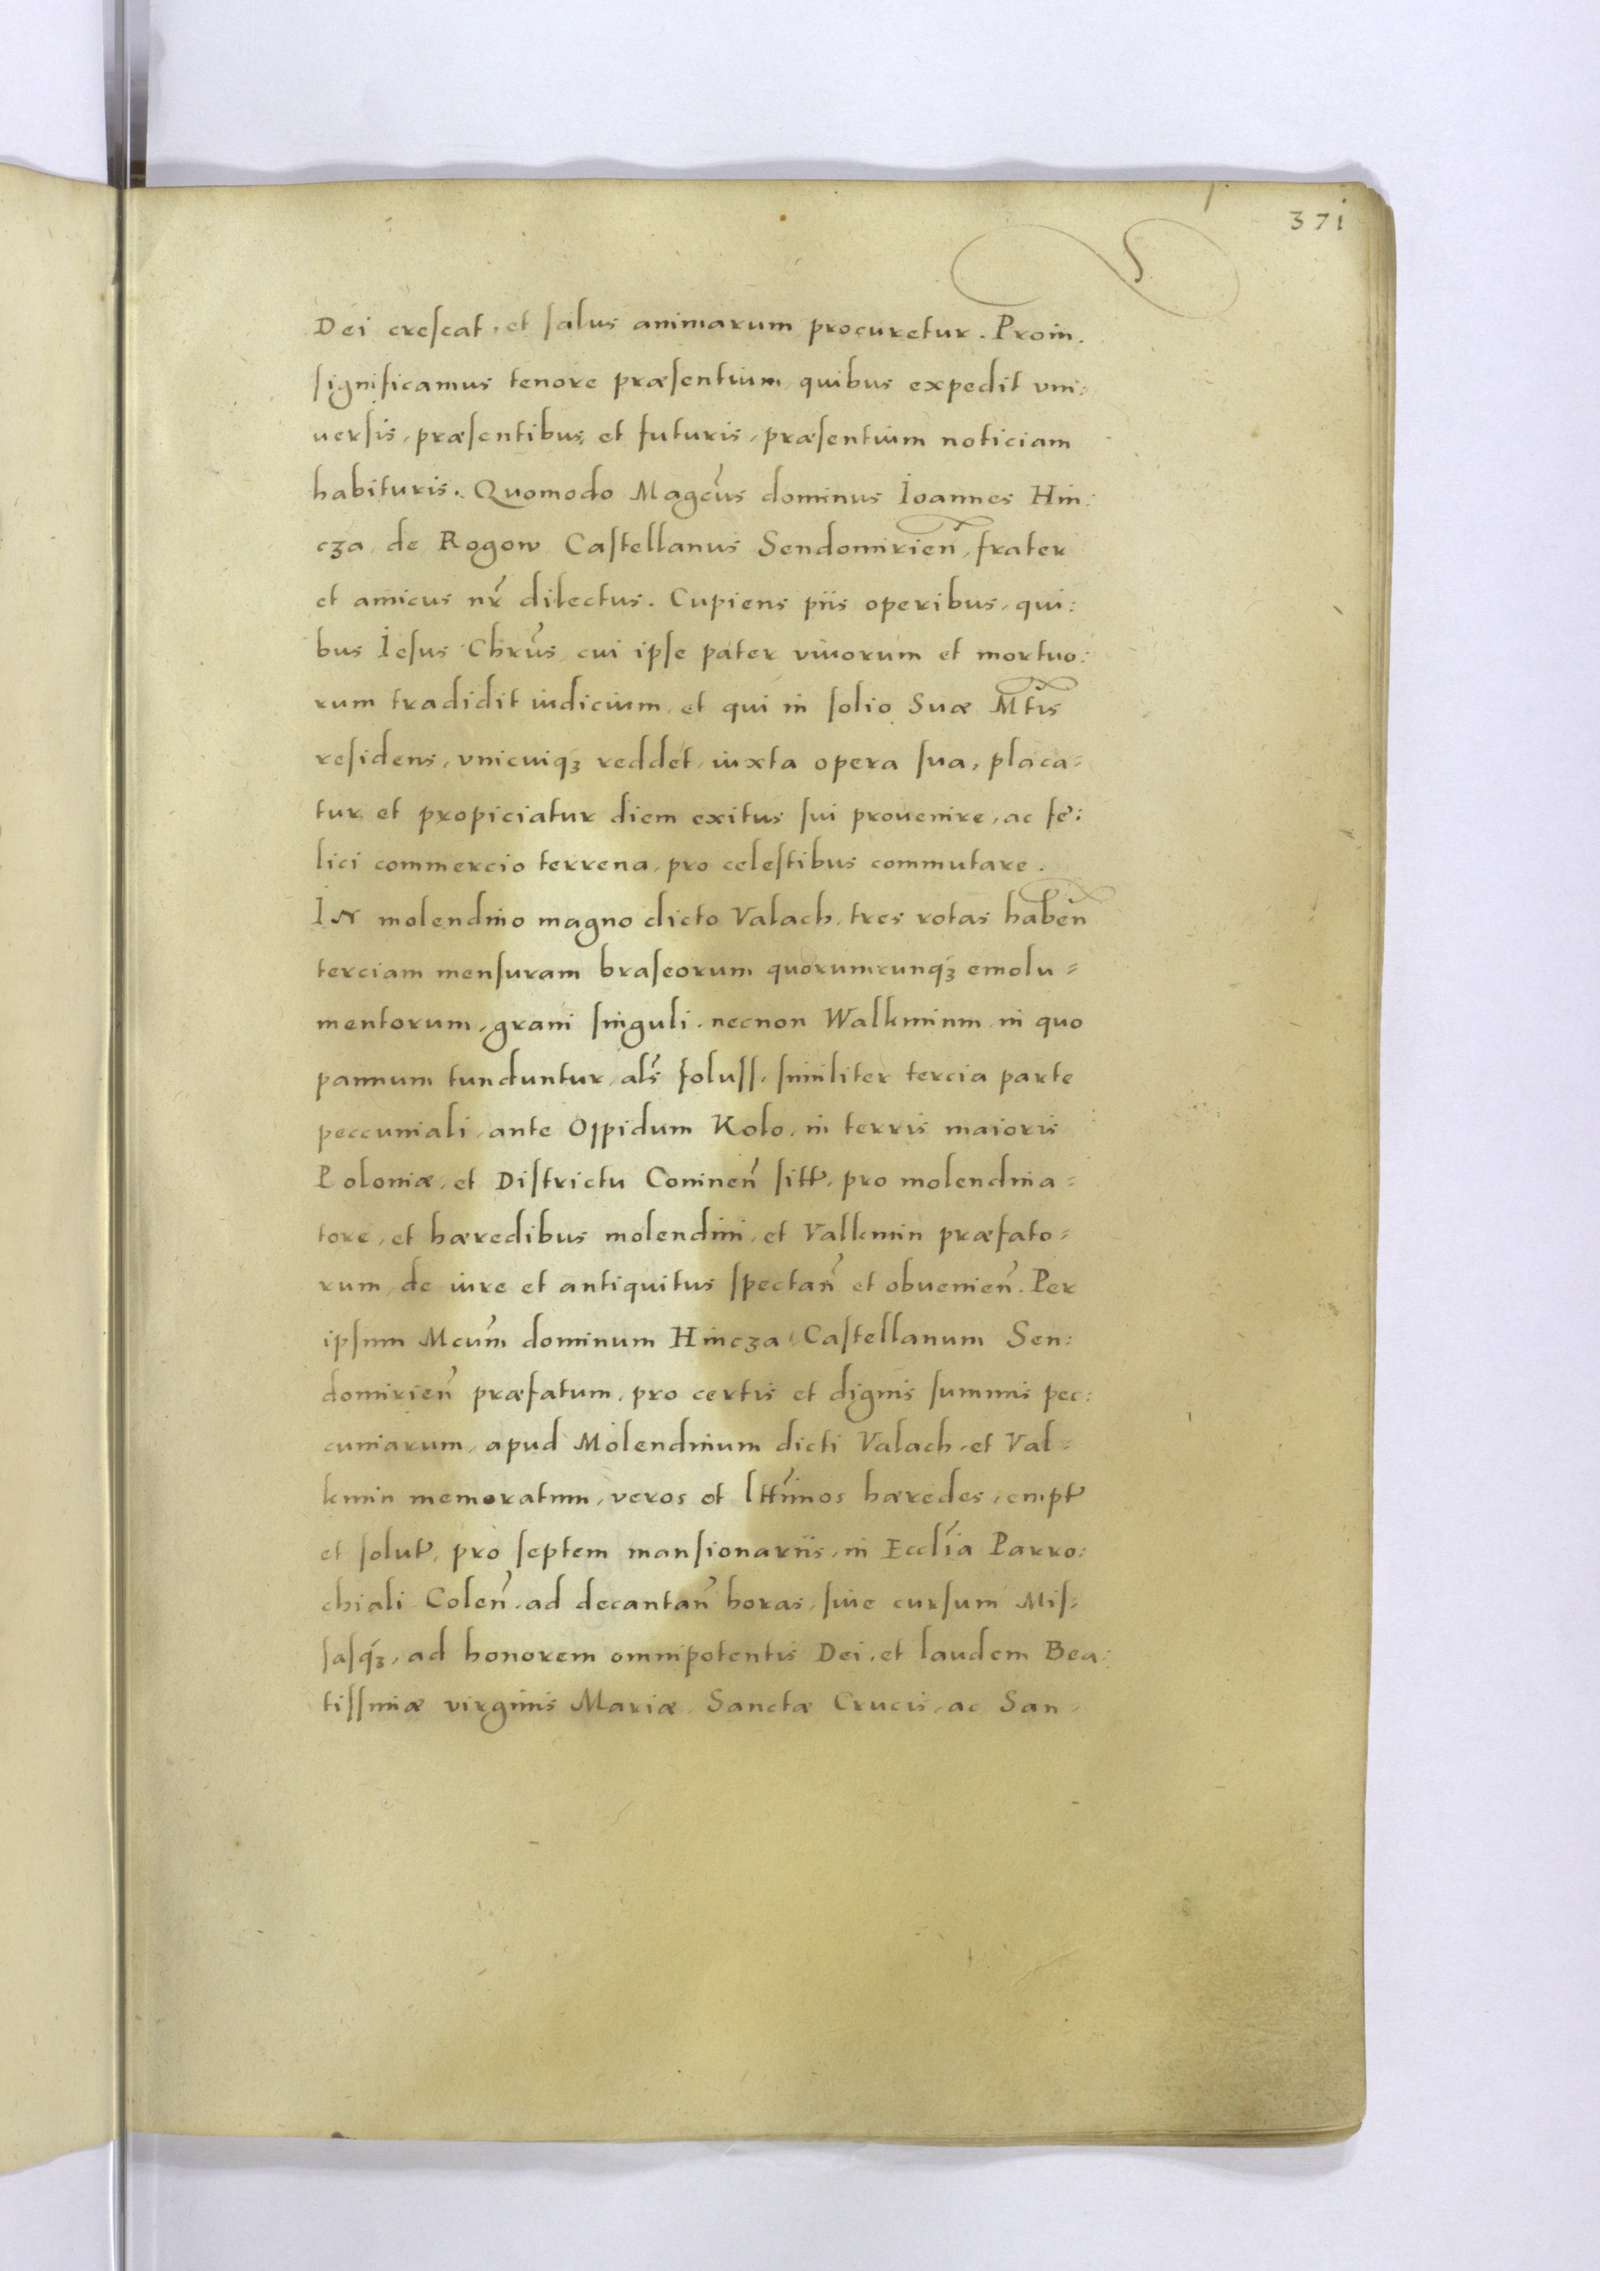 371
Dei creſcat, et ſalus animarum procuretur. Proin.
ſignificamus tenore præſentium, quibus expedit vni:
uerſis, præſentibus, et futuris, præſentium noticiam
habituris. Quomodo Magcus̃ dominus Ioannes Hin:
cʒa de Rogow Caſtellanus Sendomirien̄, frater
et amicus nr̄ dilectus. Cupiens piis operibus, qui:
bus Ieſus Chrus̃, cui ipſe pater viuorum et mortuo:
rum tradidit iudicium, et qui in ſolio Suæ Mtis̃
reſidens, vnicuiqʒ reddet, iuxta opera ſua, placa-
tur, et propiciatur diem exitus ſui prouenire, ac fe:
lici commercio terrena, pro celeſtibus commutare.
IN molendino magno dicto Valach, tres rotas haben̄
terciam menſuram braſeorum quorumcunqʒ emolu-
mentorum, grani ſinguli, necnon Walkminm in quo
pannum tunduntur, als̃ foluſſ, ſimiliter tercia parte
peccuniali, ante Oppidum Kolo, in terris maioris
Poloniæ, et Diſtrictu Coninen̄ ſitt̃, pro molendina-
tore, et hæredibus molendini, et Valkmin præfato-
rum, de iure et antiquitus ſpectan̄ et obuenien̄. Per
ipſum Mcum̃ dominum Hincʒa Caſtellanum Sen:
domirien̄ præfatum, pro certis et dignis ſummis pec:
cuniarum, apud Molendinum dicti Valach, et Val-
kmin memoratum, veros et ltt̃imos hæredes, empt̃
et ſolut̃, pro ſeptem manſionariis, in Eccl̃ia Parro:
chiali Colen̄, ad decantan̄ horas, ſiue curſum Miſ-
ſaſqʒ, ad honorem omnipotentis Dei, et laudem Bea:
tiſſimæ virginis Mariæ, Sanctæ Crucis, ac San-